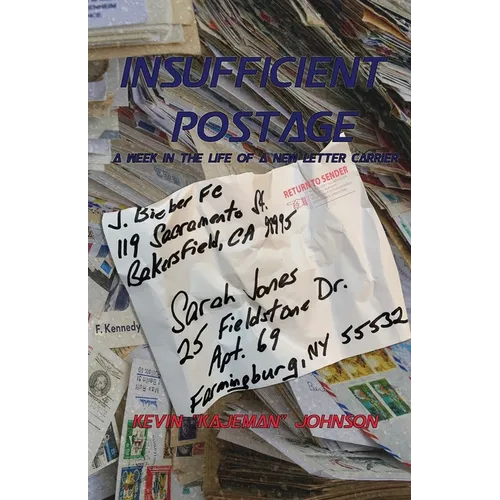 INSUFFICIENT
POSTAGE
A WEEK IN THE LIFE OF A NEW LETTER CARRIER
RETURN TO SENDER
J. Bieber Fe
119 Sacramento St.
Bakersfield, CA 99995
Sarah Jones
25 Fieldstone Dr.
Apt. 69
Farmingburg, NY 55532
F. Kennedy
KEVIN "KAJEMAN" JOHNSON